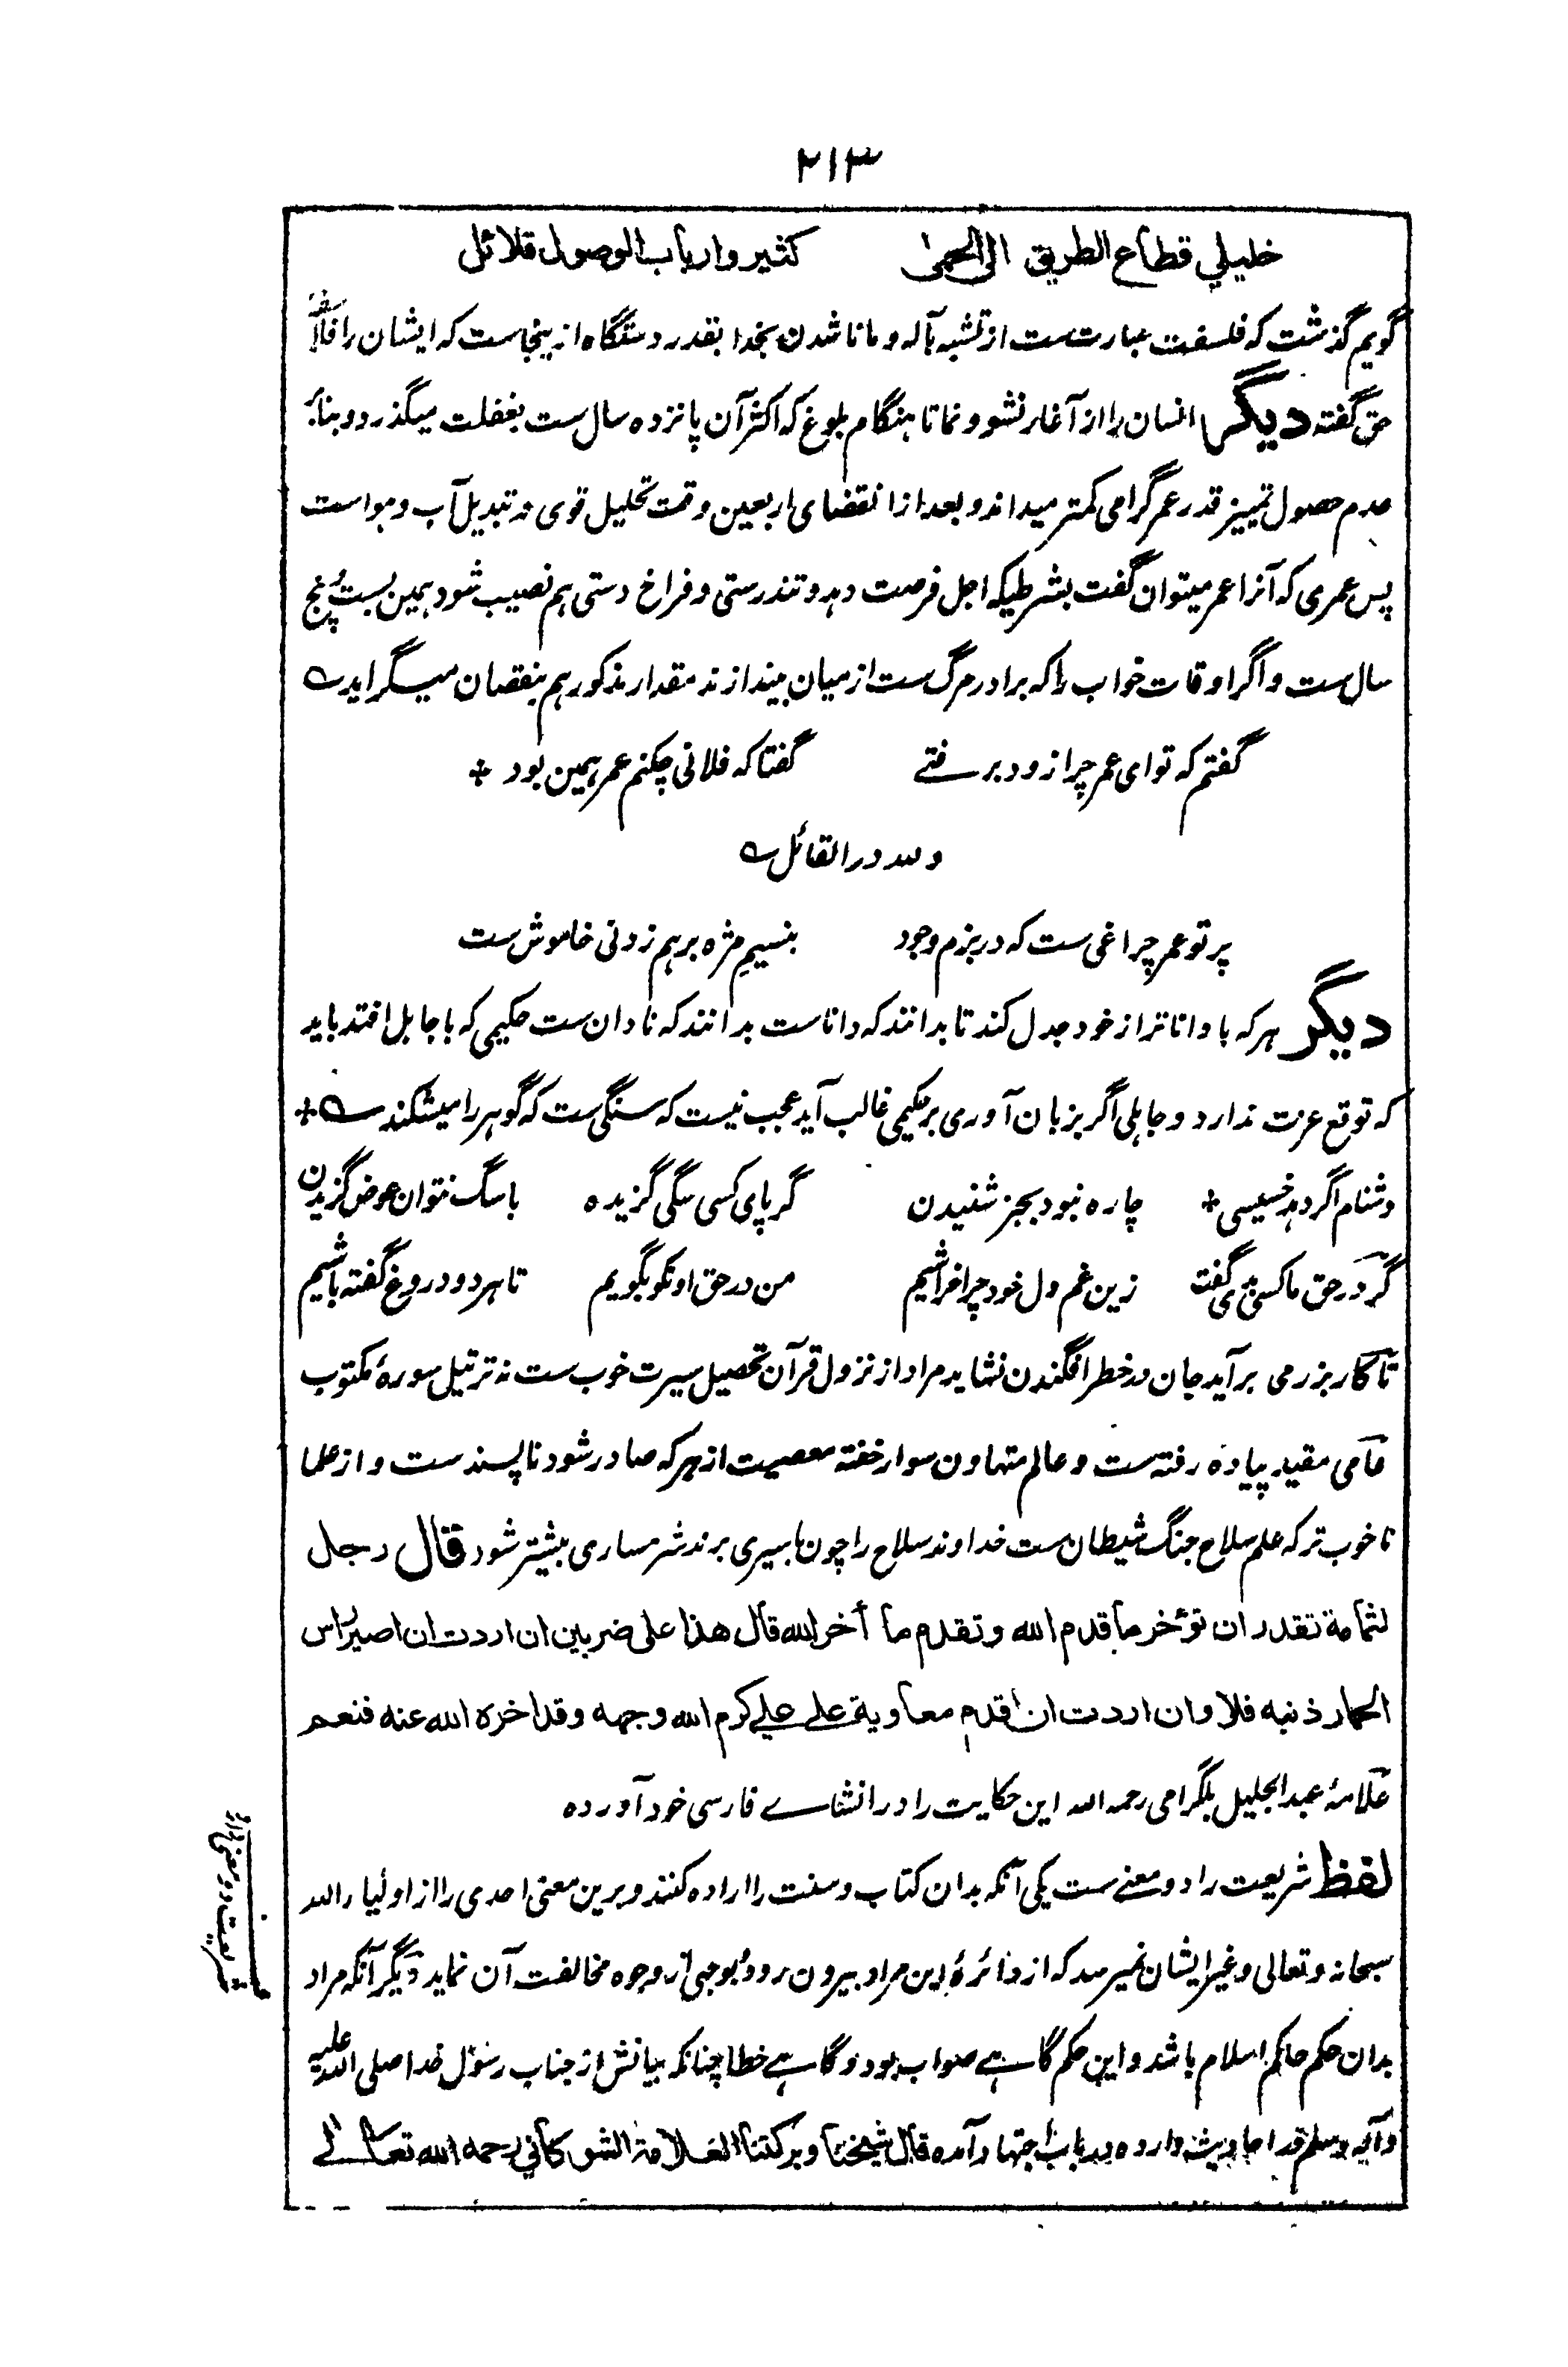 ۲۱۳
خلیلي قطاع الطریق الی الحمیٰ کثیر وارباب الوصول قلائل
گویم گذشت که فلسفت عبارت ست از تشبه بآله و مانا شدن بخدا بقدر دستگاه از ینجاست که ایشان را فلاسفه
حق گفته دیگر انسان را از آغاز نشو و نما تا هنگام بلوغ که اکثر آن پانزده سال ست بغفلت میگذرد و بنابر
عدم حصول تمییز قدر عمر گرامی کمتر میداند و بعد از انقضای اربعین وقت تحلیل قوی و تبدیل آب و هوا است
پس عمری که آنرا عمر میتوان گفت بشرطیکه اجل فرصت دهد و تندرستی و فراخ دستی هم نصیب شود همین بست و پنج
سال ست و اگر اوقات خواب را که برادر مرگ ست از میان بیندازند مقدار مذکور هم بنقصان میگراید
گفتم که تو ای عمر چرا زود برفتے گفتا که فلانی چکنم عمر همین بود +
و لله در القائل
پرتو عمر چراغی ست که در بزم وجود بنسیمِ مژه برهم زدنی خاموش ست
دیگر هر که با داناتر از خود جدل کند تا بدانند که داناست بدانند که نادان ست حکیمی که با جاهل افتد باید
که توقع عزت ندارد و جاهلی اگر بزبان آوری بر حکیمی غالب آید عجب نیست که سنگی ست که گوهر را میشکند +
دشنام اگر دهد خسیسی + چاره نبود بجز شنیدن گر پای کسی سگی گزیده با سگ نتوان عوض گزیدن
گر در حق ما کسی بدی گفت زین غم دل خود چرا خراشیم من در حق او نکو بگویم تا هر دو دروغ گفته باشیم
تا کار بزر می برآید جان در خطر افگندن نشاید مراد از نزول قرآن تحصیل سیرت خوب ست نه ترتیل سورهٔ مکتوب
عامی مقید پیاده رفته ست و عالم متهاون سوار خفته معصیت از هر که صادر شود ناپسند ست و از علما
ناخوب تر که علم سلاح جنگ شیطان ست خداوند سلاح را چون باسیری برند شرمساری بیشتر شود قال رجل
لثمامة تقدر ان تؤخر ما قدم الله وتقدم ما أخر الله قال هذا علی ضربین ان اردت ان اصیر راس
الحمار ذنبه فلا وان اردت ان اقدم معاویة علی علي کرم الله وجهه وقد اخره الله عنه فنعم
علامهٔ عبد الجلیل بلگرامی رحمه الله این حکایت را در انشاے فارسی خود آورده
لفظ شریعت را دو معنے ست یکی آنکه بدان کتاب و سنت را اراده کنند و برین معنی احدی را از اولیاء الله
سبحانه و تعالی و غیر ایشان نمیرسد که از دائرهٔ این مراد بیرون رود و بوجهی از وجوه مخالفت آن نماید دیگر آنکه مراد
بدان حکم حاکم اسلام باشد و این حکم گاہے صواب بود و گاہے خطا چنانکه بیانش از جناب رسول خدا صلی الله علیه
و آله و سلم در احادیث وارده در باب اجتهاد آمده قال شیخنا وبرکتنا العلامة الشوکاني رحمه الله تعالی